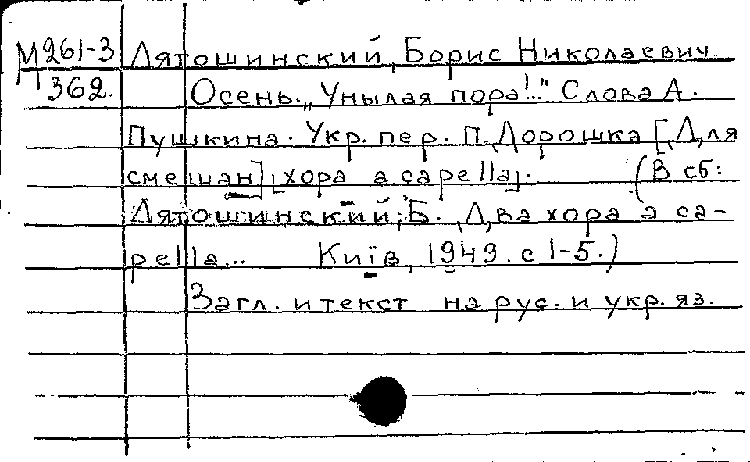 М261-3 Лятошинский, Борис Николаевич
362. Осень. „Унылая пора!.." Слова А.
Пушкина. Укр. пер. П. Дорошка [Для
смешан] [хора a capella]. (В сб:
Лятошинский, Б. Два хора a ca-
pella... Київ, 1949. с 1-5.)
Загл. и текст на рус. и укр. яз.